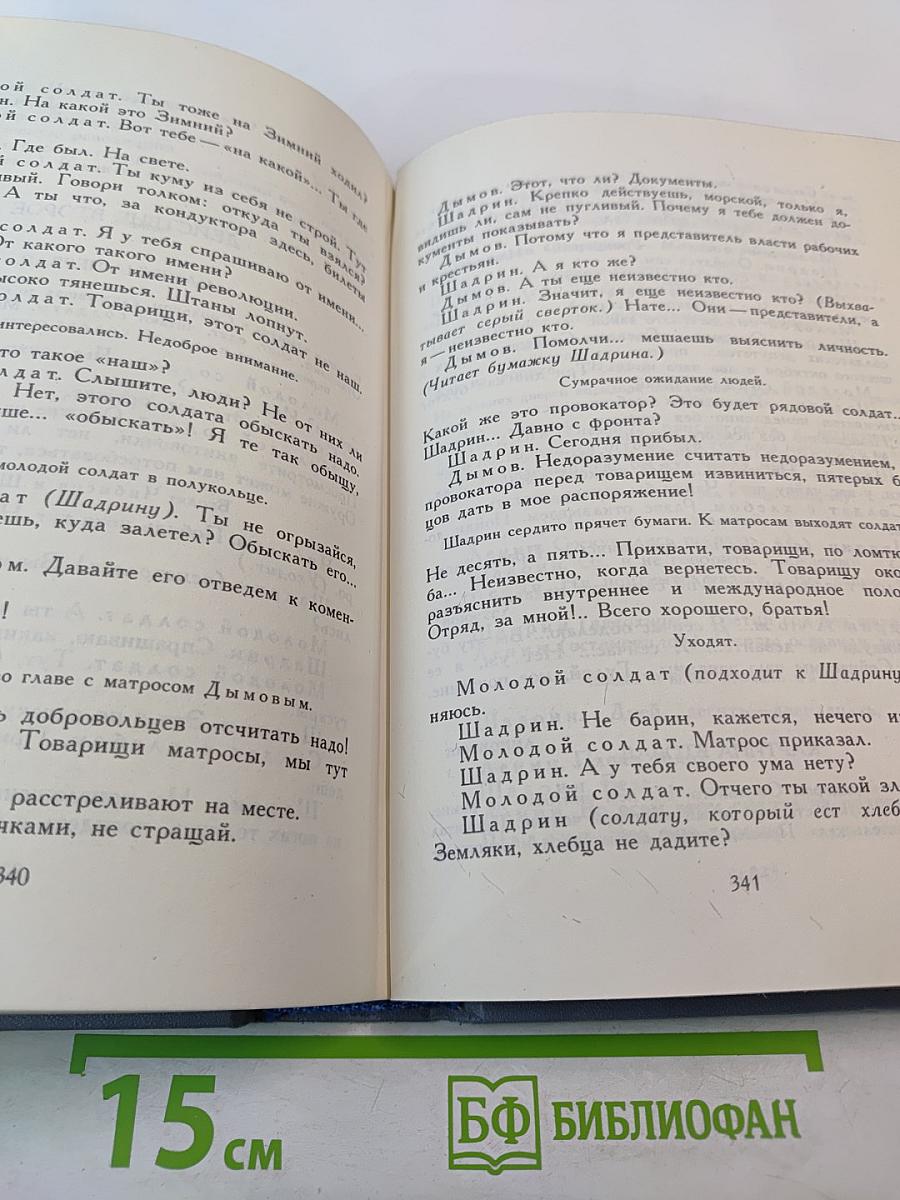 ой солдат. Ты тоже на Зимний ходил?
н. На какой это Зимний?
й солдат. Вот тебе — «на какой»... Ты где
Где был. На свете.
й солдат. Ты куму из себя не строй. Тут
ивый. Говори толком: откуда ты взялся?
А ты что, за кондуктора здесь, билеты
солдат. Я у тебя спрашиваю от имени...
От какого такого имени?
солдат. От имени революции.
ысоко тянешься. Штаны лопнут.
олдат. Товарищи, этот солдат не наш.
интересовались. Недоброе внимание.
то такое «наш»?
лдат. Слышите, люди? Не от них ли
Нет, этого солдата обыскать надо.
ше... «обыскать»! Я те так обыщу,
молодой солдат в полукольце.
ат (Шадрину). Ты не огрызайся,
ешь, куда залетел? Обыскать его...
ом. Давайте его отведем к комен-
!
о главе с матросом Дымовым.
ь добровольцев отсчитать надо!
Товарищи матросы, мы тут
расстреливают на месте.
чками, не стращай.
340
Дымов. Этот, что ли? Документы.
Шадрин. Крепко действуешь, морской, только я,
видишь ли, сам не пугливый. Почему я тебе должен до-
кументы показывать?
Дымов. Потому что я представитель власти рабочих
и крестьян.
Шадрин. А я кто же?
Дымов. А ты еще неизвестно кто.
Шадрин. Значит, я еще неизвестно кто? (Выхва-
тывает серый сверток.) Нате... Они — представители, а
я — неизвестно кто.
Дымов. Помолчи... мешаешь выяснить личность.
(Читает бумажку Шадрина.)
Сумрачное ожидание людей.
Какой же это провокатор? Это будет рядовой солдат...
Шадрин... Давно с фронта?
Шадрин. Сегодня прибыл.
Дымов. Недоразумение считать недоразумением,
провокатора перед товарищем извиниться, пятерых б
цов дать в мое распоряжение!
Шадрин сердито прячет бумаги. К матросам выходят солдат
Не десять, а пять... Прихвати, товарищи, по ломтю
ба... Неизвестно, когда вернетесь. Товарищу око
разъяснить внутреннее и международное поло
Отряд, за мной!.. Всего хорошего, братья!
Уходят.
Молодой солдат (подходит к Шадрину
няюсь.
Шадрин. Не барин, кажется, нечего и
Молодой солдат. Матрос приказал.
Шадрин. А у тебя своего ума нету?
Молодой солдат. Отчего ты такой зл
Шадрин (солдату, который ест хлеб
Земляки, хлебца не дадите?
341
15 см
БФ БИБЛИОФАН